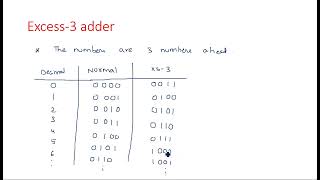 Excess-3 adder
* The numbers are 3 numbers ahead
Decimal Normal XS-3
0 0000 0011
1 0001 0100
2 0010 0101
3 0011 0110
4 0100 0111
5 0101 1000
6 0110 1001
: : :